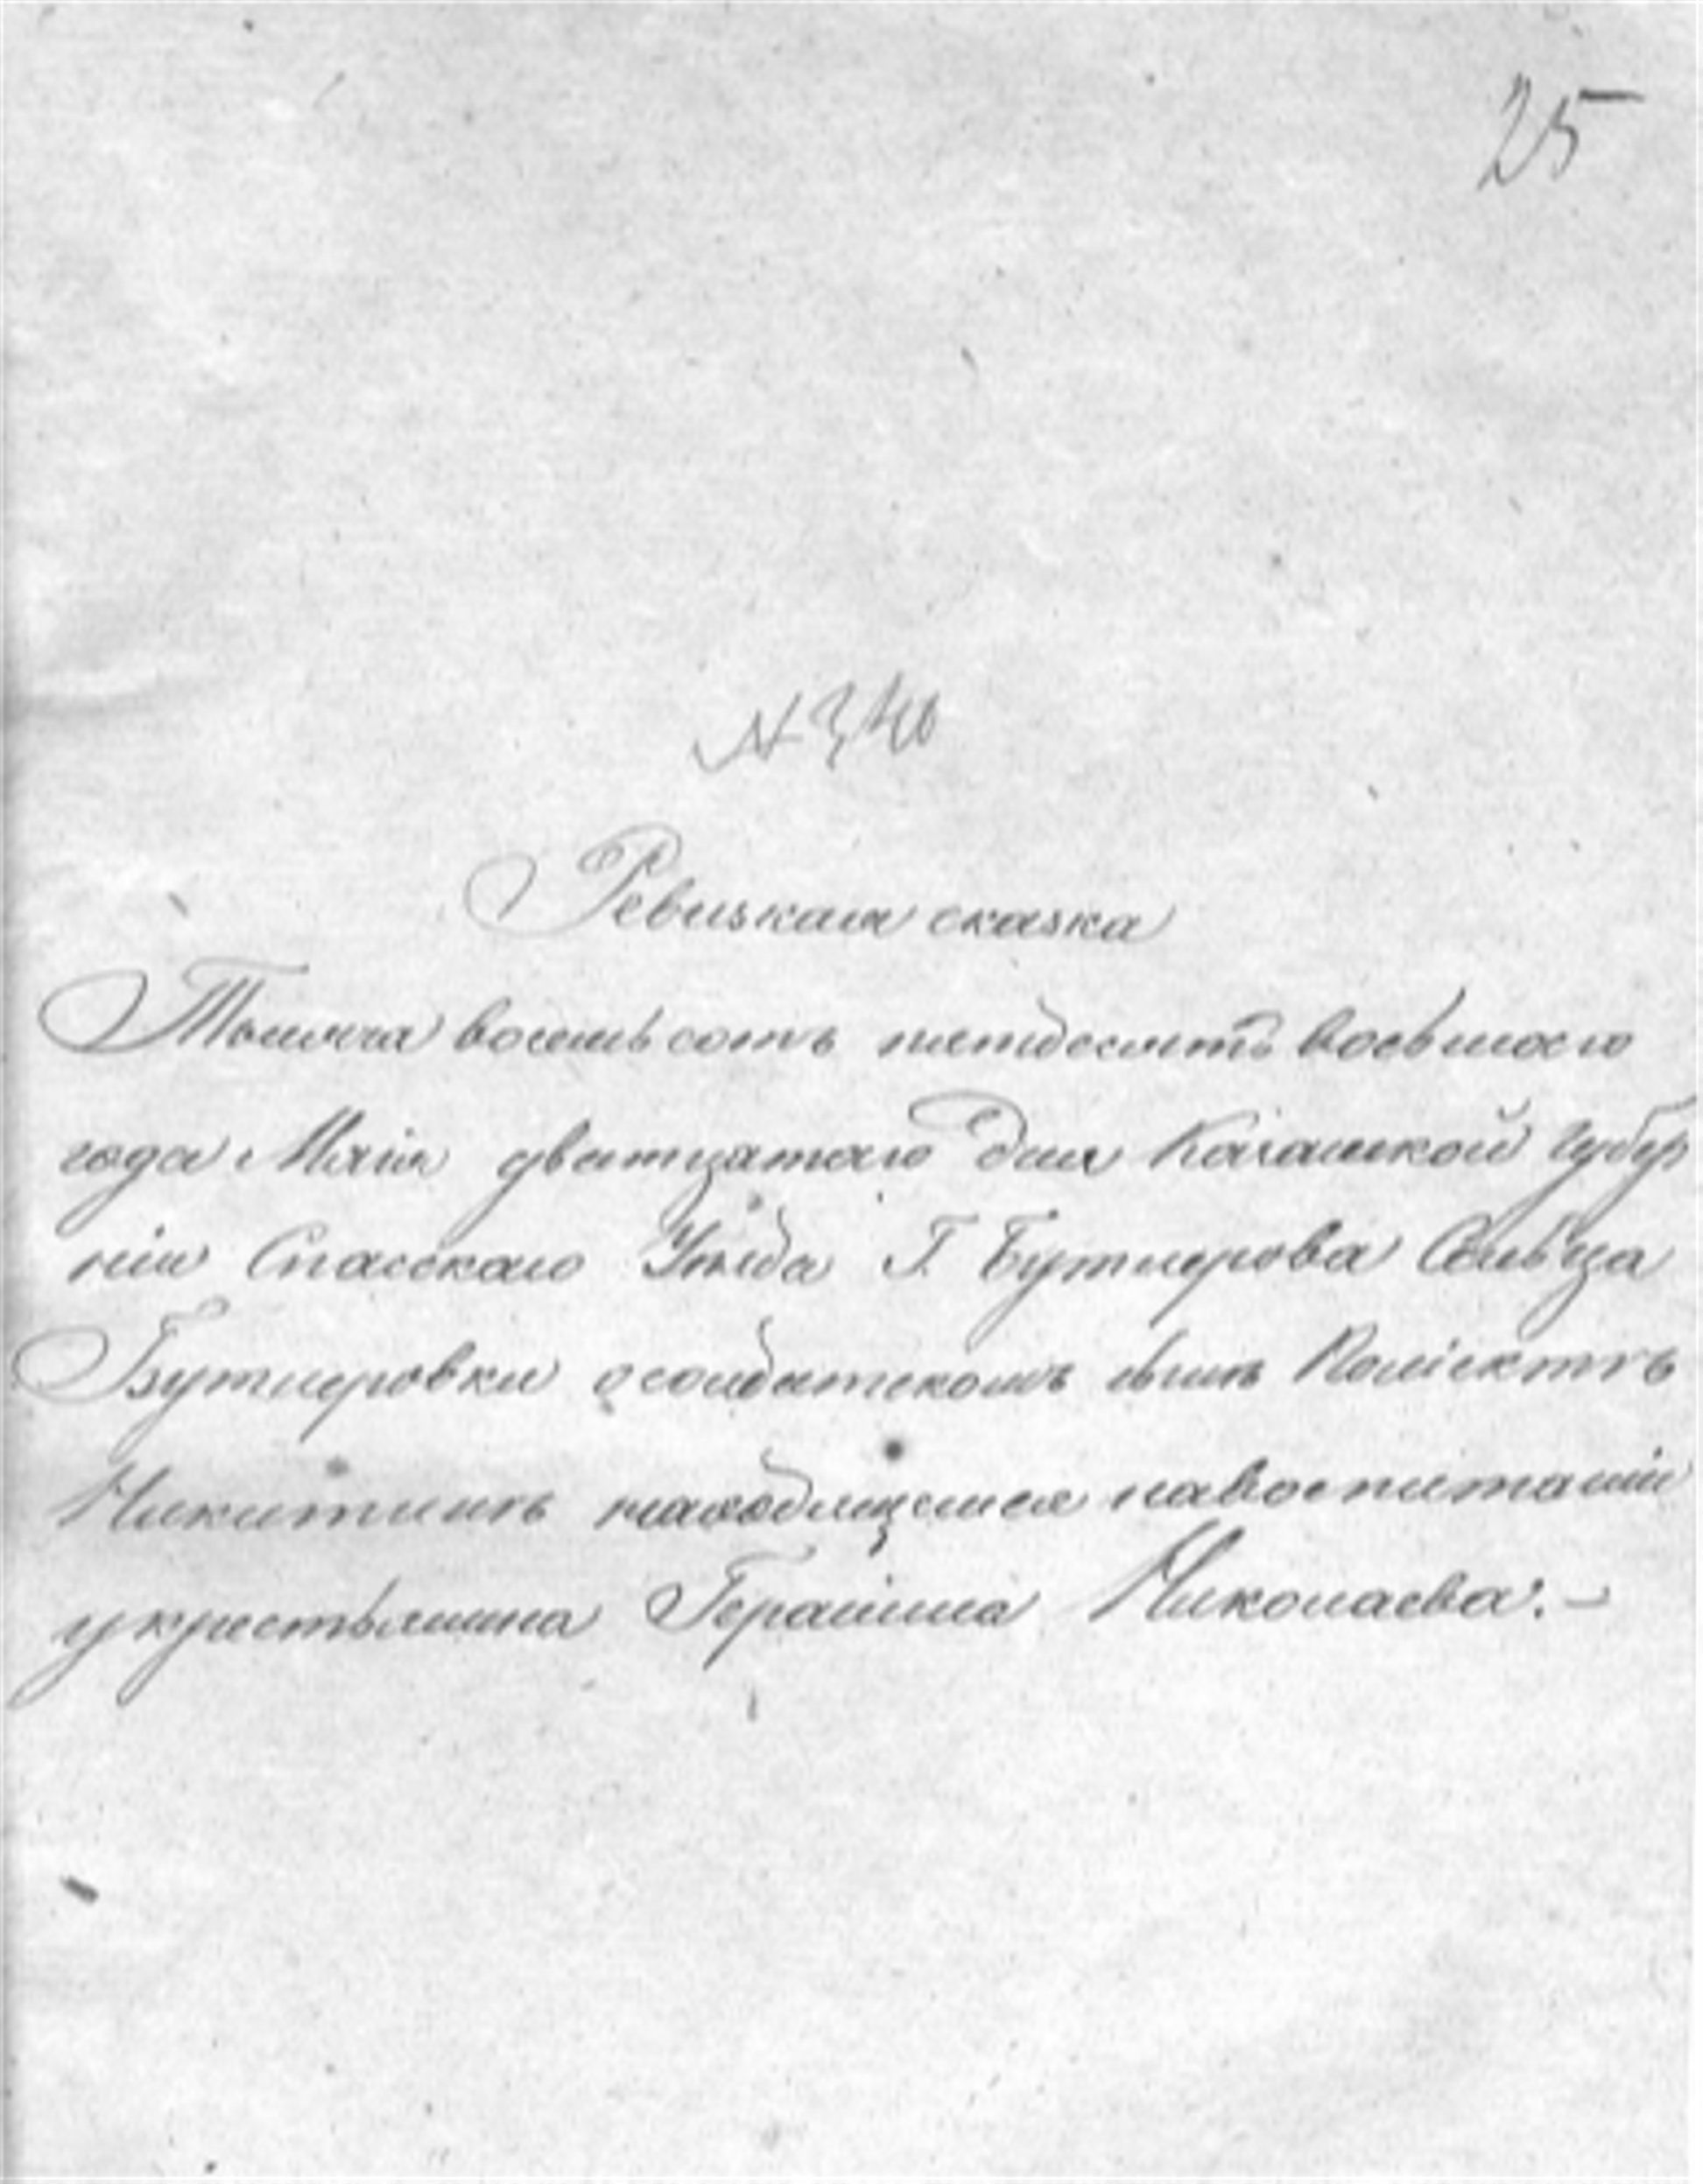 25
№ 340
Ревизкая сказка
Тысяча восемь сотъ пятдесятъ восьмаго
года Маія дватцатаго дня Казанской Губер
ніи Спасскаго Уѣзда Г. Бутлерова Сельца
Бутлеровки о солдатскомъ сынѣ
Никитинѣ находящемся навоспитаніи
укрестьянина Герасима Николаева. —